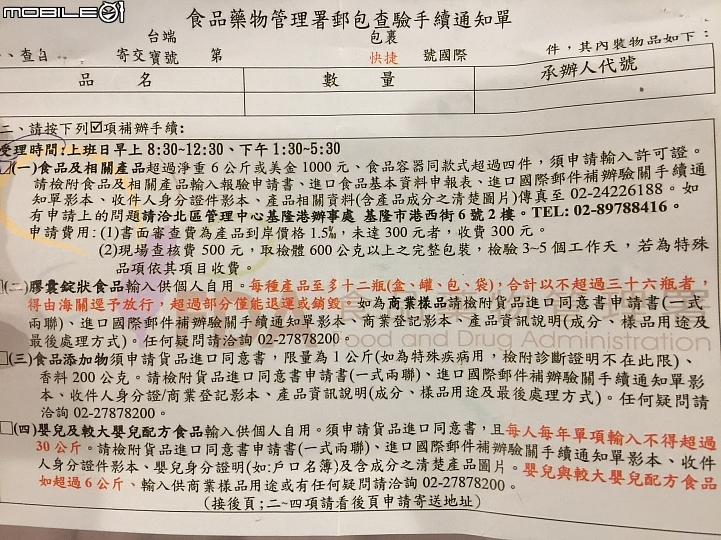 mobile01
食品藥物管理署郵包查驗手續通知單
台端 包裹
、查自 寄交寶號 第 快捷 號國際 件，其內裝物品如下：
品 名 數 量 承辦人代號
二、請按下列☑項補辦手續：
受理時間:上班日早上 8:30~12:30、下午 1:30~5:30
(一)食品及相關產品超過淨重 6 公斤或美金 1000 元、食品容器同款式超過四件，須申請輸入許可證。
請檢附食品及相關產品輸入報驗申請書、進口食品基本資料申報表、進口國際郵件補辦驗關手續通
知單影本、收件人身分證件影本、產品相關資料(含產品成分之清楚圖片)傳真至 02-24226188。如
有申請上的問題請洽北區管理中心基隆港辦事處 基隆市港西街 6 號 2 樓。TEL: 02-89788416。
申請費用：(1)書面審查費為產品到岸價格 1.5‰，未達 300 元者，收費 300 元。
(2)現場查核費 500 元，取檢體 600 公克以上之完整包裝，檢驗 3~5 個工作天，若為特殊
品項依其項目收費。
(二)膠囊錠狀食品輸入供個人自用。每種產品至多十二瓶(盒、罐、包、袋)，合計以不超過三十六瓶者，
得由海關逕予放行，超過部分僅能退運或銷毀。如為商業樣品請檢附貨品進口同意書申請書(一式
兩聯)、進口國際郵件補辦驗關手續通知單影本、商業登記影本、產品資訊說明(成分、樣品用途及
最後處理方式)。任何疑問請洽詢 02-27878200。
Food and Drug Administration
□(三)食品添加物須申請貨品進口同意書，限量為 1 公斤(如為特殊疾病用，檢附診斷證明不在此限)、
香料 200 公克。請檢附貨品進口同意書申請書(一式兩聯)、進口國際郵件補辦驗關手續通知單影
本、收件人身分證/商業登記影本、產品資訊說明(成分、樣品用途及最後處理方式)。任何疑問請
洽詢 02-27878200。
□(四)嬰兒及較大嬰兒配方食品輸入供個人自用。須申請貨品進口同意書，且每人每年單項輸入不得超過
30 公斤。請檢附貨品進口同意書申請書(一式兩聯)、進口國際郵件補辦驗關手續通知單影本、收件
人身分證件影本、嬰兒身分證明(如:戶口名簿)及含成分之清楚產品圖片。嬰兒與較大嬰兒配方食品
如超過 6 公斤、輸入供商業樣品用途或有任何疑問請洽詢 02-27878200。
(接後頁；二~四項請看後頁申請寄送地址)